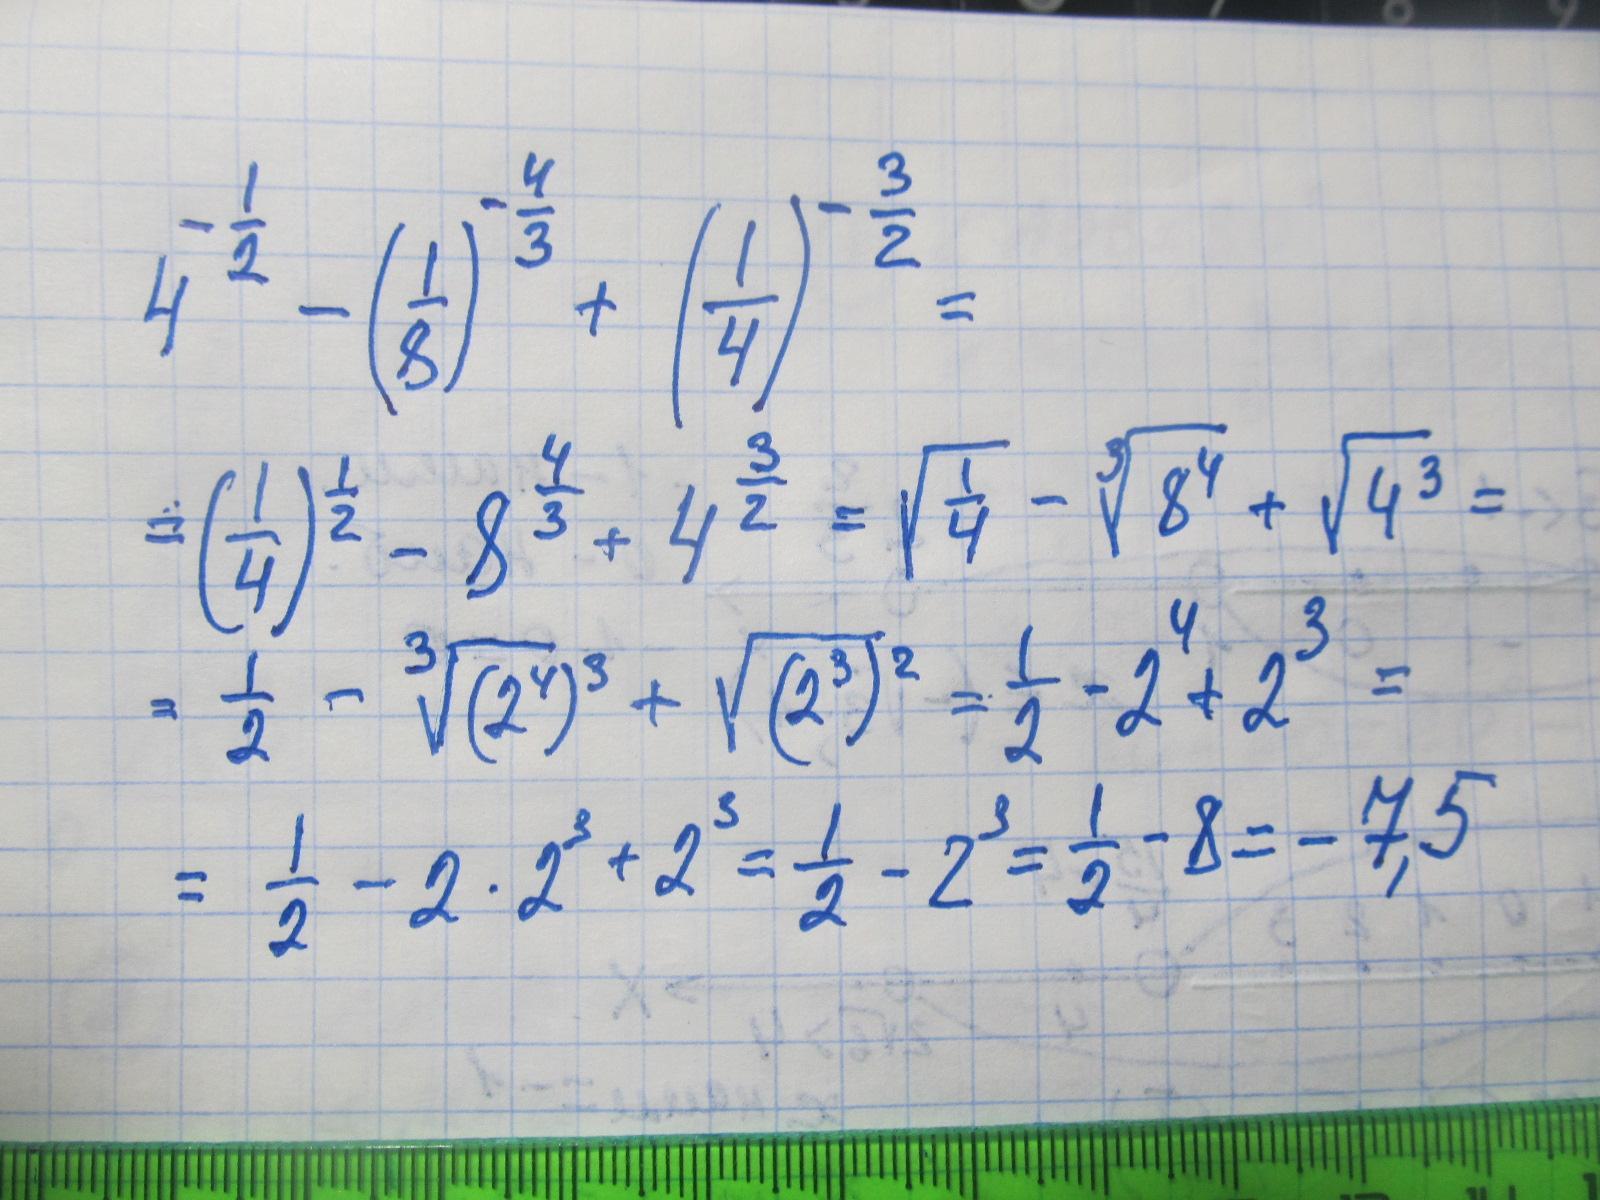 4^{-\frac{1}{2}} - \left(\frac{1}{8}\right)^{-\frac{4}{3}} + \left(\frac{1}{4}\right)^{-\frac{3}{2}} =
= \left(\frac{1}{4}\right)^{\frac{1}{2}} - 8^{\frac{4}{3}} + 4^{\frac{3}{2}} = \sqrt{\frac{1}{4}} - \sqrt[3]{8^4} + \sqrt{4^3} =
= \frac{1}{2} - \sqrt[3]{(2^4)^3} + \sqrt{(2^3)^2} = \frac{1}{2} - 2^4 + 2^3 =
= \frac{1}{2} - 2 \cdot 2^3 + 2^3 = \frac{1}{2} - 2^3 = \frac{1}{2} - 8 = -7,5